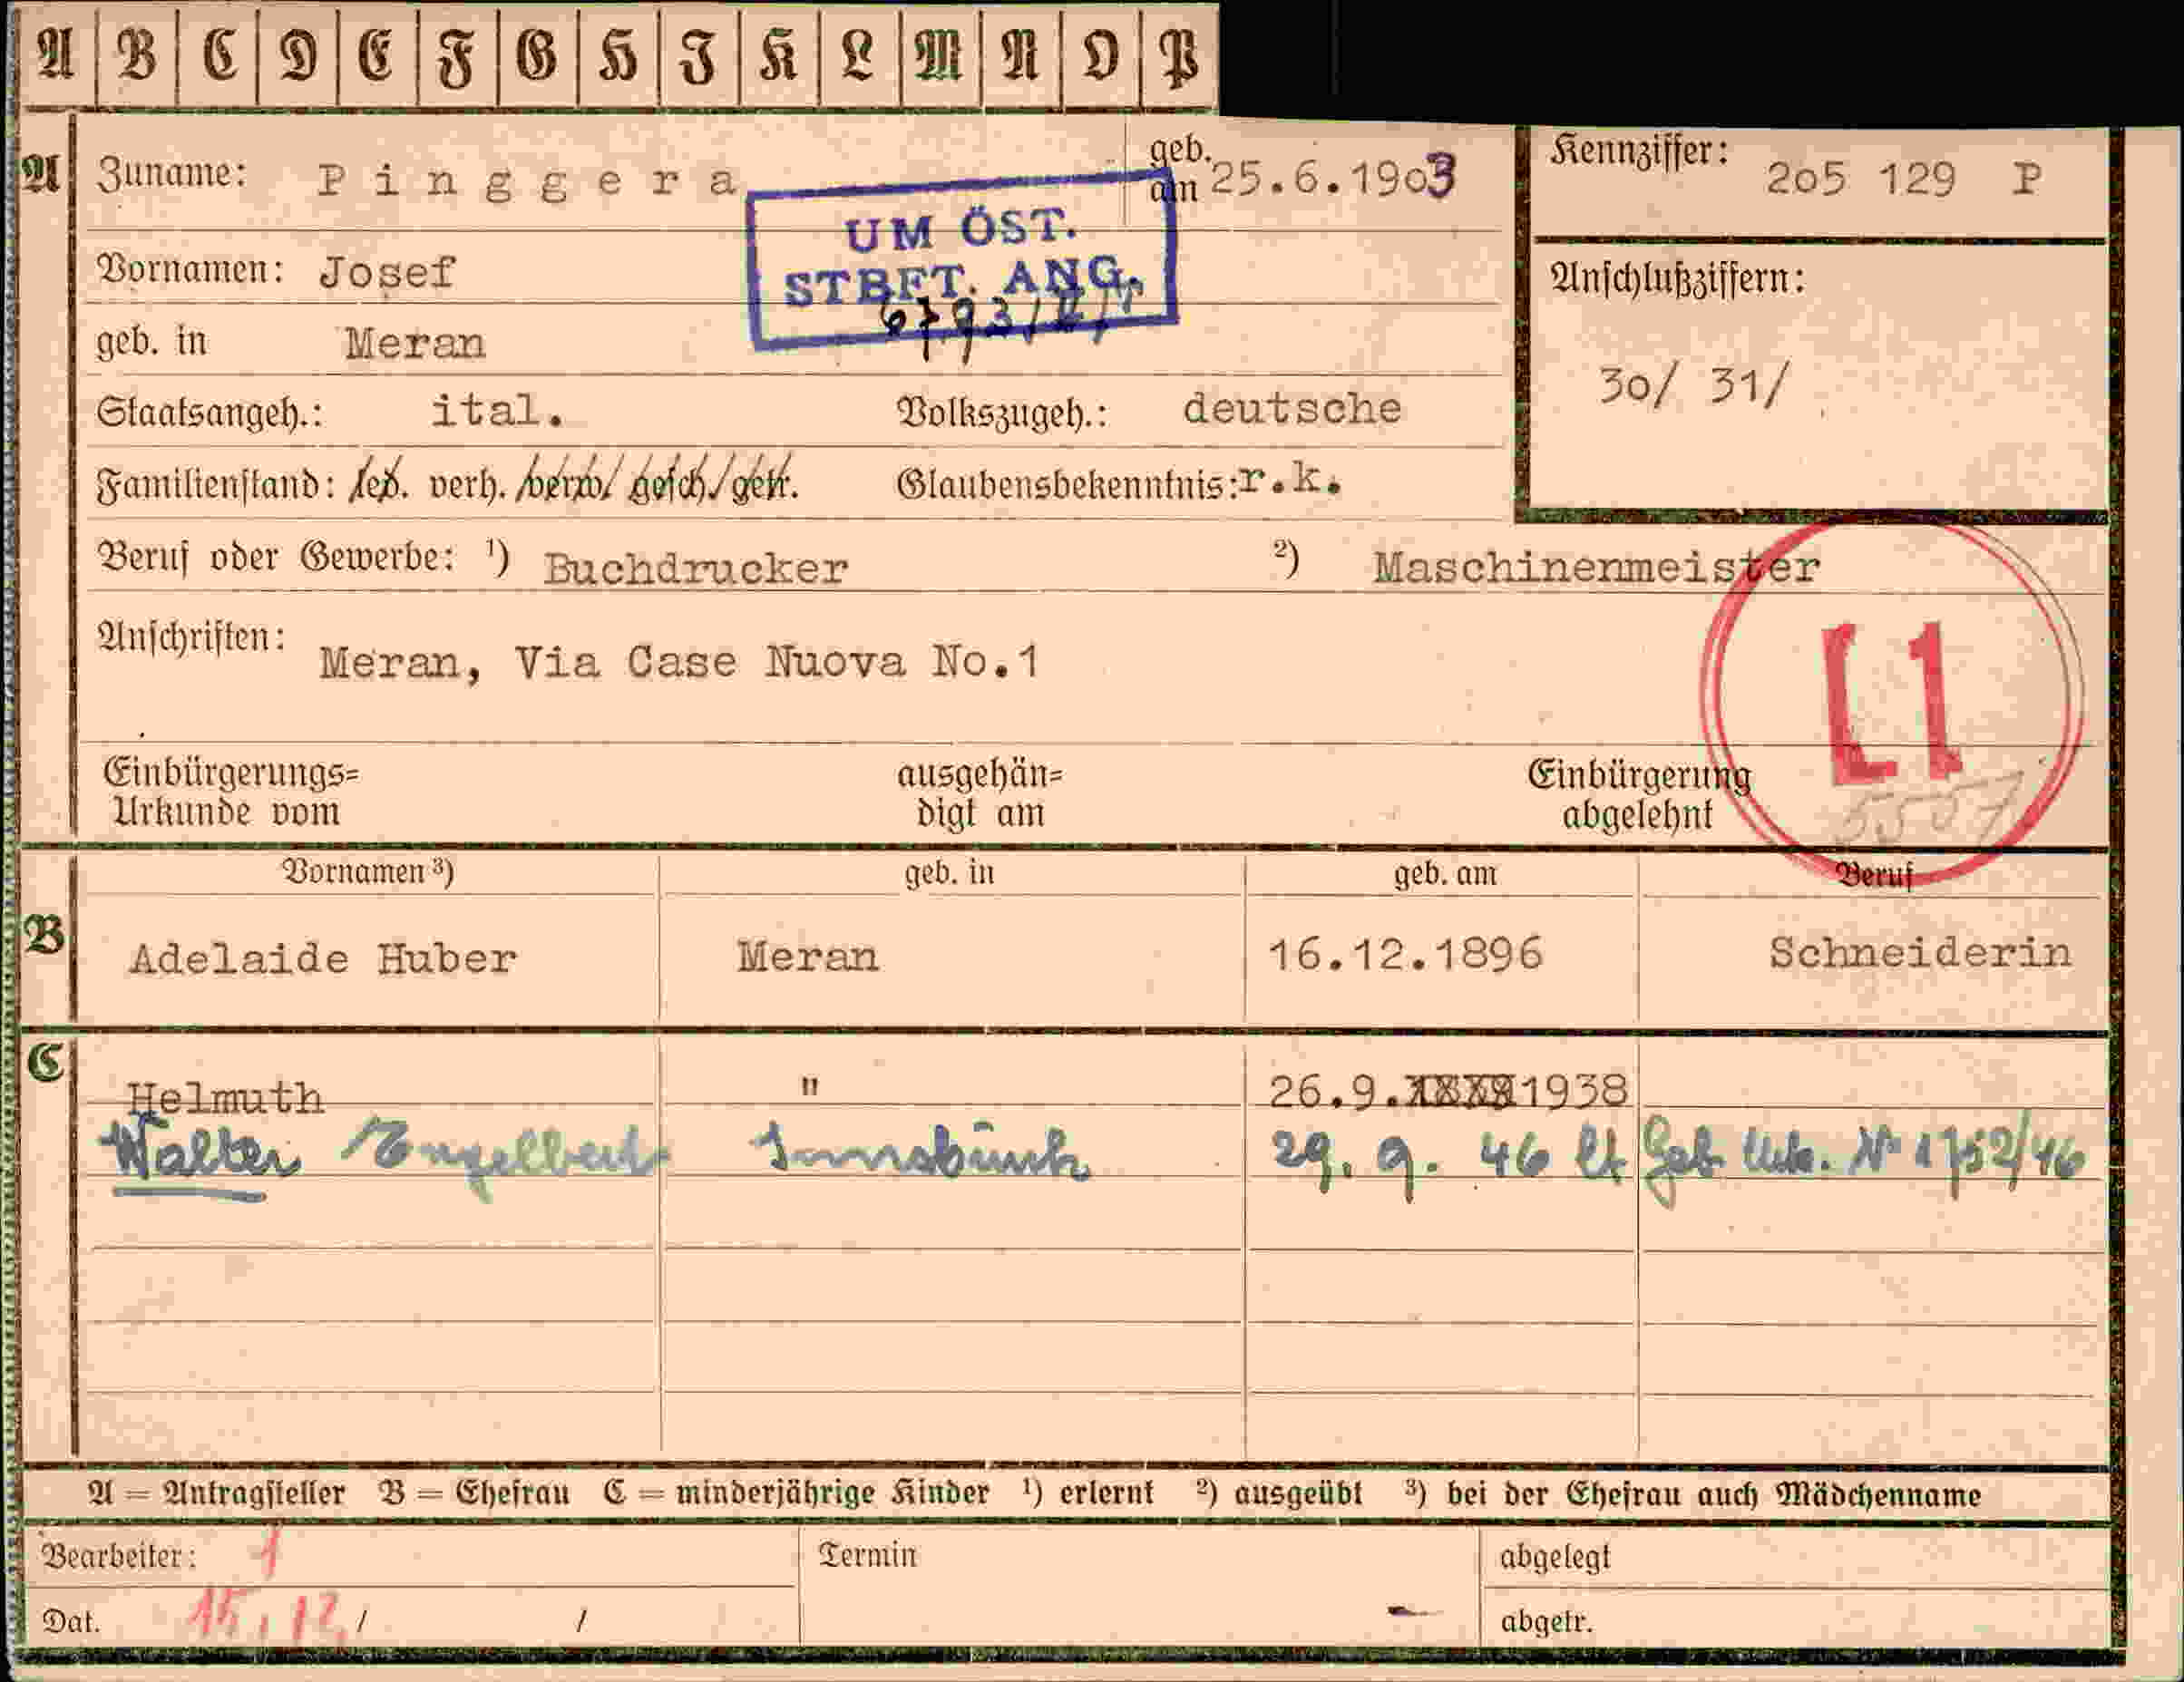 A B C D E F G H J K L M N O P
A Zuname: Pinggera geb. am 25.6.1903 Kennziffer: 205 129 P
UM ÖST.
STBFT. ANG.
Vornamen: Josef Anschlußziffern:
geb. in Meran
30/ 31/
Staatsangeh.: ital. Volkszugeh.: deutsche
Familienstand: led. verh. verw/ gesch/getr. Glaubensbekenntnis: r.k.
Beruf oder Gewerbe: ¹) Buchdrucker ²) Maschinenmeister
Anschriften: Meran, Via Case Nuova No.1
5507
Einbürgerungs= ausgehän= Einbürgerung
Urkunde vom digt am abgelehnt
Vornamen ³) geb. in geb. am Beruf
B Adelaide Huber Meran 16.12.1896 Schneiderin
C Helmuth " 26.9.1938
Walter Engelbert Innsbruck 29. 9. 46 lt Geb Urk. Nº 1752/46
A = Antragsteller B = Ehefrau C = minderjährige Kinder ¹) erlernt ²) ausgeübt ³) bei der Ehefrau auch Mädchenname
Bearbeiter: 1 Termin abgelegt
Dat. 15.12. / / abgetr.